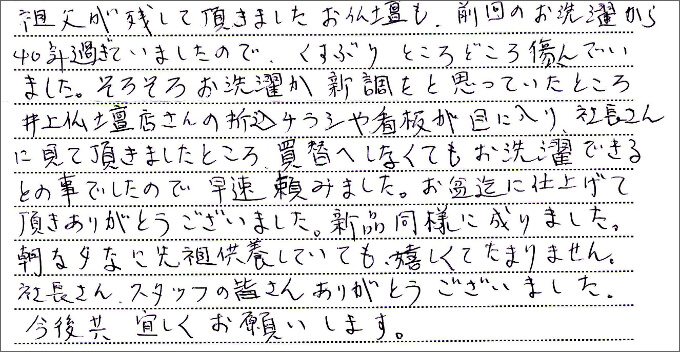 祖父が残して頂きましたお仏壇も、前回のお洗濯から
40年過ぎていましたので くすぶり ところどころ傷んでい
ました。そろそろお洗濯か新調をと思っていたところ
井上仏壇店さんの折込チラシや看板が目に入り、社長さん
に見て頂きましたところ、買替へしなくてもお洗濯できる
との事でしたので早速頼みました。お盆迄に仕上げて
頂きありがとうございました。新品同様に成りました。
朝な夕なに先祖供養していても、嬉しくてたまりません。
社長さん、スタッフの皆さんありがとうございました。
今後共 宜しくお願いします。